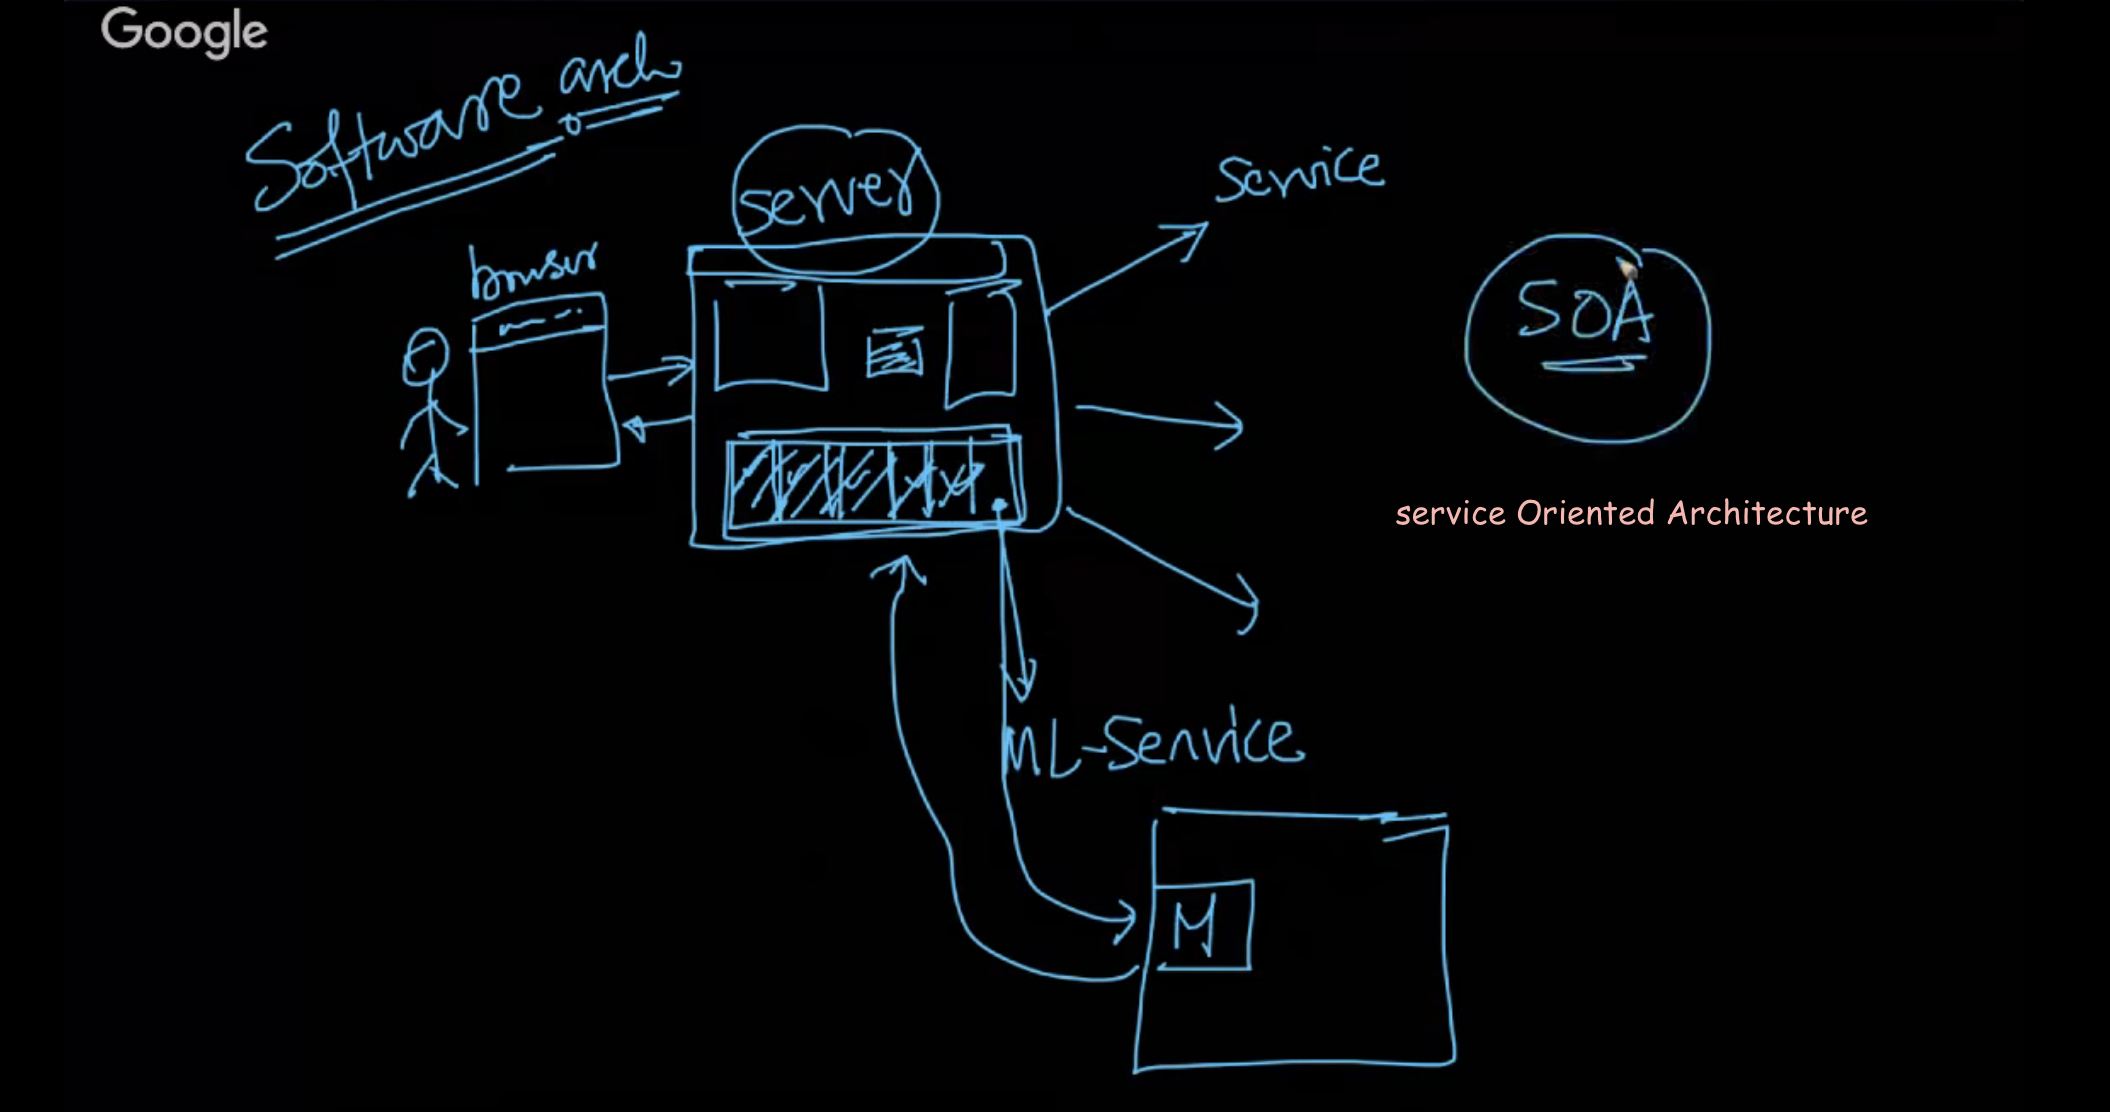 Google
Software arch
server
Service
browser
SOA
service Oriented Architecture
ML-Service
M